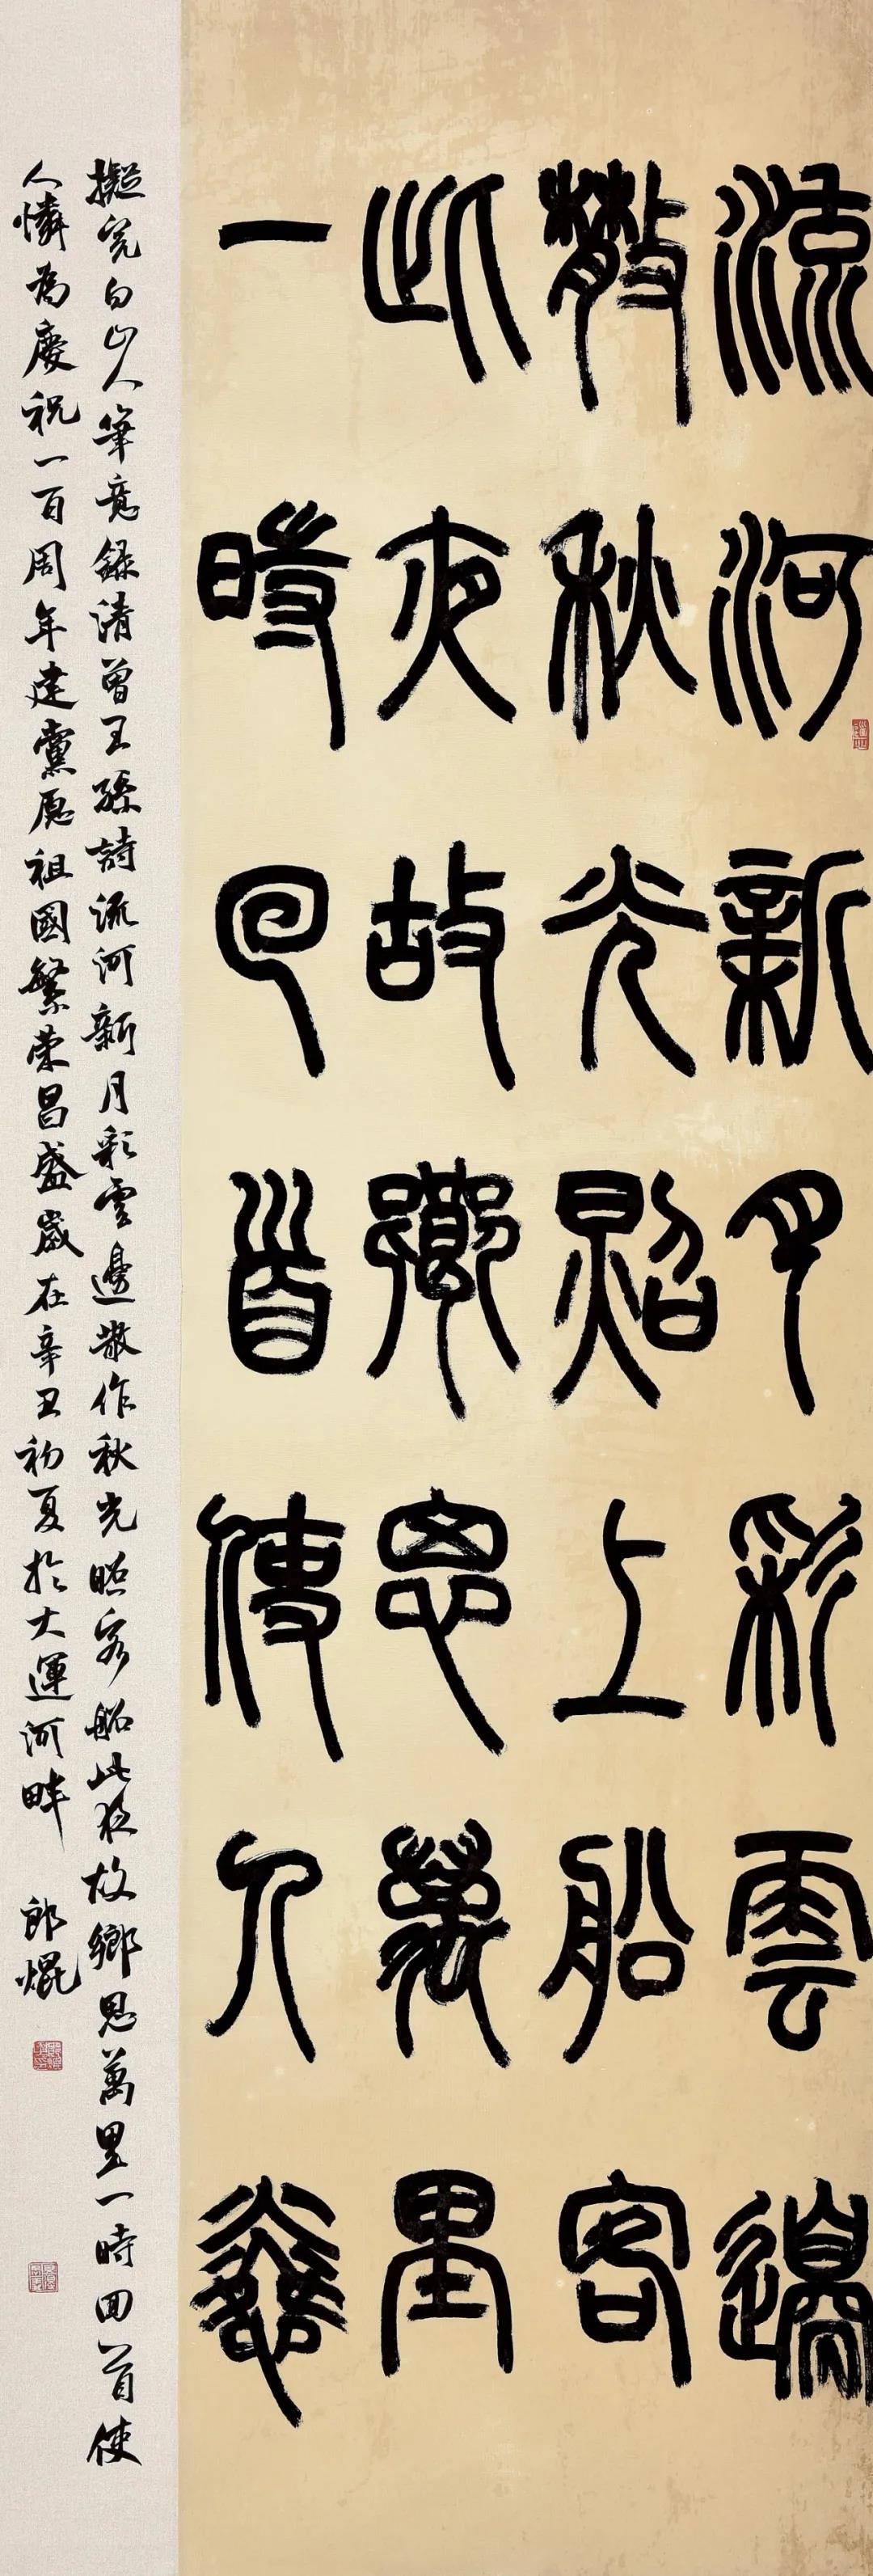 流河新月彩雲邊
散秋光照上船客
此夜故鄉思萬里
一時回首使人憐
擬完白山人筆意錄清曾王孫詩流河新月彩雲邊散作秋光照客船此夜故鄉思萬里一時回首使
人憐為慶祝一百周年建黨愿祖國繁荣昌盛歲在辛丑初夏於大運河畔 郎焜